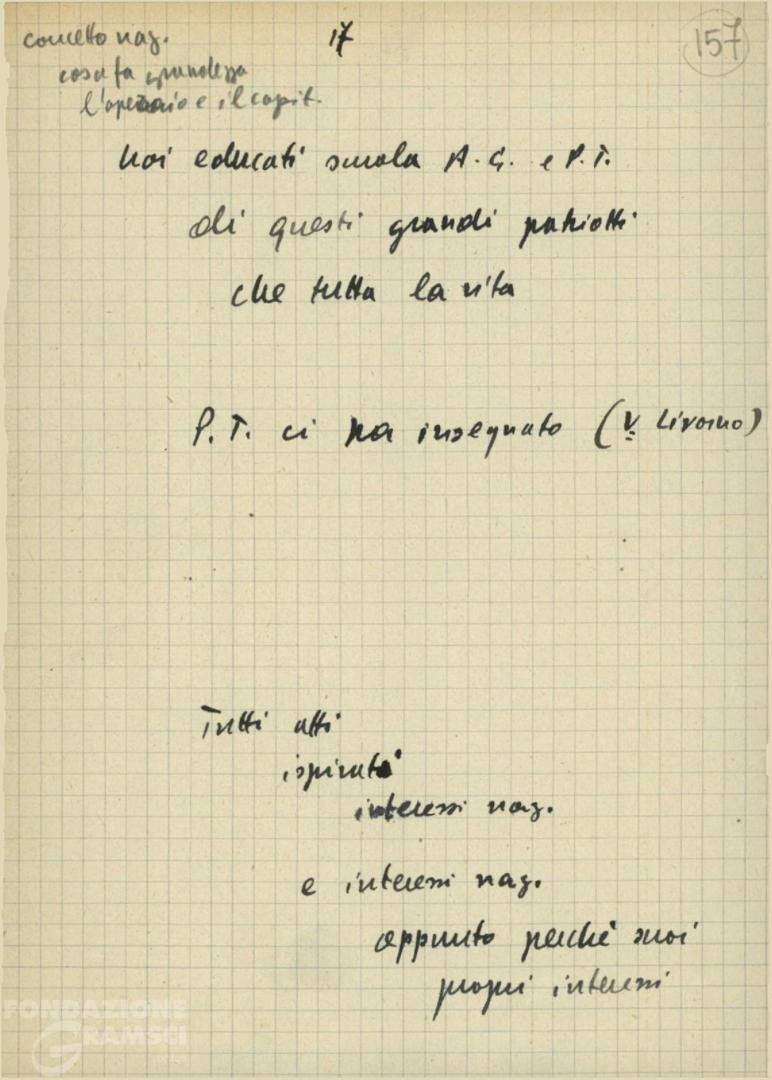 concetto naz.
17
157
cosa fa grandezza
l'operaio e il capit.
Noi educati scuola A. G. e P. T.
di questi grandi patriotti
che tutta la vita
P. T. ci ha insegnato (V. Livorno)
Tutti atti
ispirati
interessi naz.
e interessi naz.
appunto perché suoi
propri interessi
FONDAZIONE
GRAMSCI